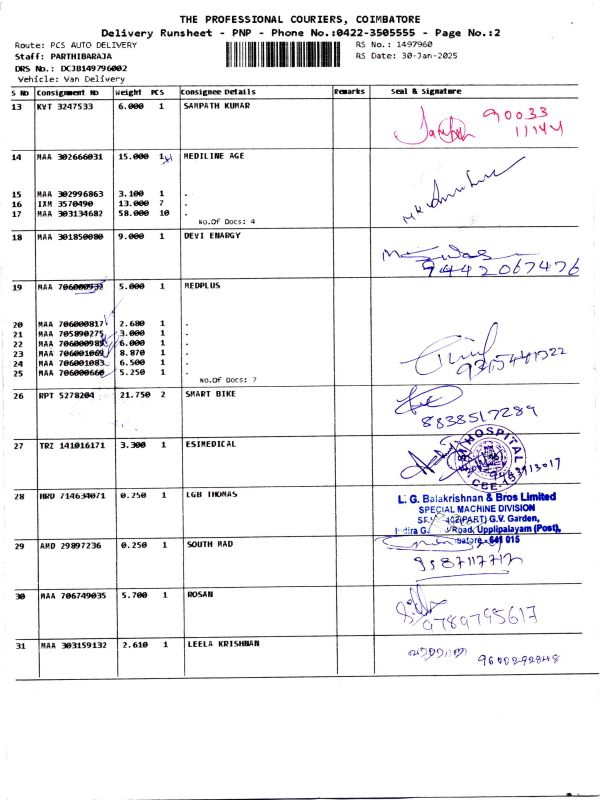 THE PROFESSIONAL COURIERS, COIMBATORE
Delivery Runsheet - PNP - Phone No.:0422-3505555 - Page No.:2
Route: PCS AUTO DELIVERY RS No.: 1497960
Staff: PARTHIBARAJA RS Date: 30-Jan-2025
DRS No.: DCJB149796002
Vehicle: Van Delivery
S No Consignment No Weight PCS Consignee Details Remarks Seal & Signature
13 KVT 3247533 6.000 1 SAMPATH KUMAR
90033
11144
14 MAA 302666031 15.000 1 MEDILINE AGE
15 MAA 302996863 3.100 1 .
16 IXM 3570490 13.000 7 .
17 MAA 303134682 58.000 10 .
No.Of Docs: 4
18 MAA 301850080 9.000 1 DEVI ENARGY
9442067476
19 MAA 706000932 5.000 1 MEDPLUS
20 MAA 706000817 2.680 1 .
21 MAA 705890275 3.000 1 .
22 MAA 706000985 6.000 1 .
23 MAA 706001069 8.870 1 .
24 MAA 706001083 6.500 1 .
25 MAA 706000660 5.250 1 .
No.Of Docs: 7
26 RPT 5278204 21.750 2 SMART BIKE
8838517289
27 TRZ 141016171 3.300 1 ESIMEDICAL
ESI HOSPITAL
28 HRD 714634071 0.250 1 LGB THOMAS
L. G. Balakrishnan & Bros Limited
SPECIAL MACHINE DIVISION
402(PART) G.V. Garden,
Road, Upplipalayam (Post),
- 641 015
29 AMD 29897236 0.250 1 SOUTH MAD
9587117712
30 MAA 706749035 5.700 1 ROSAN
9789795617
31 MAA 303159132 2.610 1 LEELA KRISHNAN